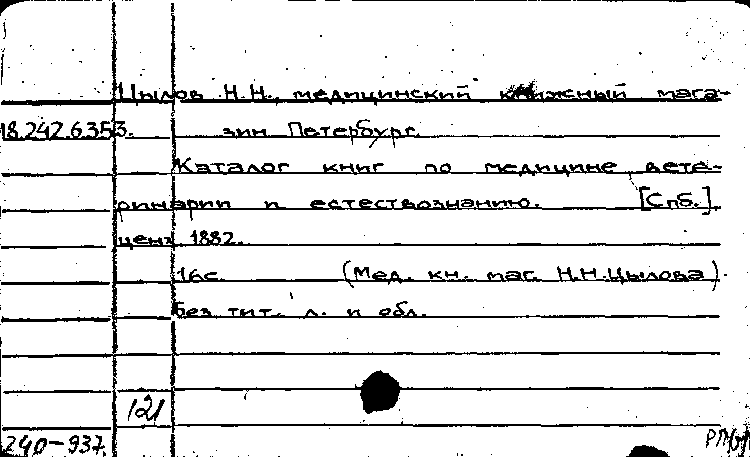 Цылов Н.Н., медицинский книжный мага-
18.242.6353. зин Петербург.
Каталог книг по медицине, вете-
ринарии и естествознанию. [Спб.],
ценз. 1882.
16с. (Мед. кн. маг. Н.Н.Цылова).
Без тит. л. и обл.
121
240-937.